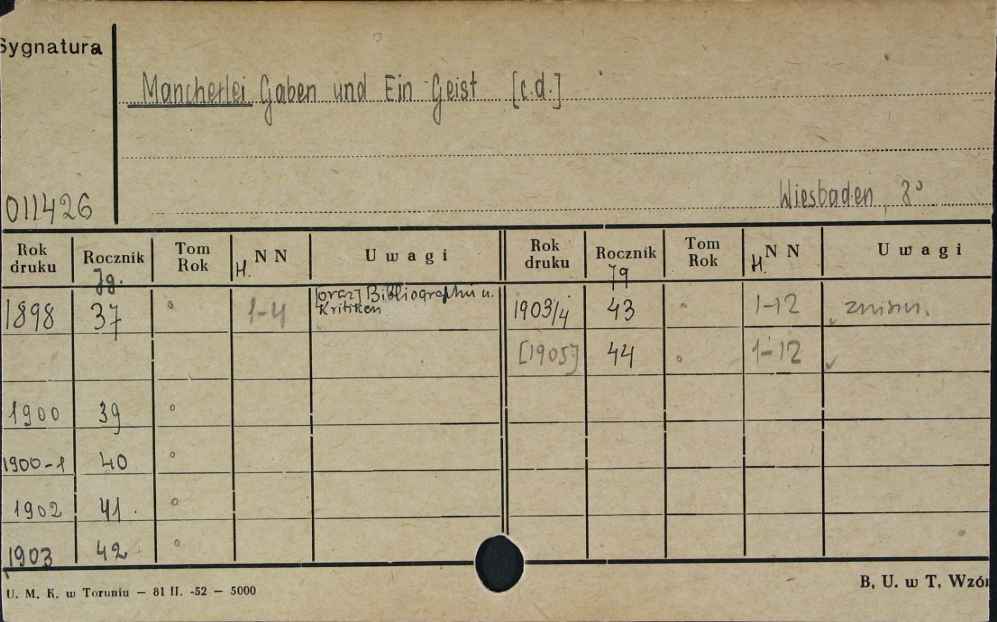 Sygnatura
Mancherlei Gaben und Ein Geist [c.d.]
Wiesbaden, 8°
011426
Rok druku Rocznik Jg. Tom Rok H. N N Uwagi Rok druku Rocznik Jg Tom Rok H. N N Uwagi
1898 37 ° 1-4 [oraz] Bibliographie u. Kritiken 1903/4 43 ° 1-12
[1905] 44 ° 1-12
1900 39 °
1900-1 40 °
1902 41 °
1903 42 °
U. M. K. w Toruniu — 81 II. -52 — 5000
B. U. w T, Wzór